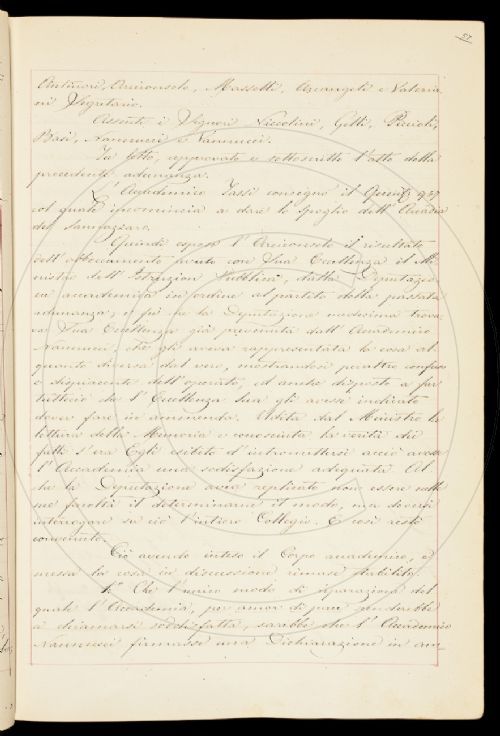 57
Antinori, Arciconsolo, Massetti, Arcangeli e Valeria
ni Segretario.
Assenti i Signori Niccolini, Gelli, Piccioli,
Basi, Nannucci e Vannucci.
Fu letto, approvato e sottoscritto l'atto della
precedente adunanza.
L'Accademico Tassi consegnò il
col quale incomincia a dare lo spoglio dell'Arcadia
del Sannazzaro.
Quindi espose l'Arciconsolo il resultato
dell'abboccamento avuto con Sua Eccellenza il Mi
nistro dell'Istruzion Pubblica, dalla Deputazio
ne accademica in ordine al partito della passata
adunanza, e fu che la Deputazione medesima trova
va Sua Eccellenza già prevenuta dall'Accademico
Nannucci, che gli aveva rappresentata la cosa al
quanto diversa dal vero, mostrandosi peraltro confuso
e dispiacente dell'operato, ed anche disposto a far
tuttociò che l'Eccellenza Sua gli avesse indicato
dover fare in ammenda. Udita dal Ministro la
lettura della Memoria e conosciuta la verità dei
fatti s'era Egli esibito d'intromettersi acciò avesse
l'Accademia una sodisfazione adeguata. Al
che la Deputazione avea replicato non essere nelle
sue facoltà il determinarne il modo, ma doversi
interrogare su ciò l'intiero Collegio. E così restò
convenuto.
Ciò avendo inteso il Corpo accademico, e
messa la cosa in discussione rimase stabilito
1° Che l'unico modo di riparazione del
quale l'Accademia, per amor di pace potrebbe
a chiamarsi soddisfatta, sarebbe che l'Accademico
Nannucci firmasse una Dichiarazione in